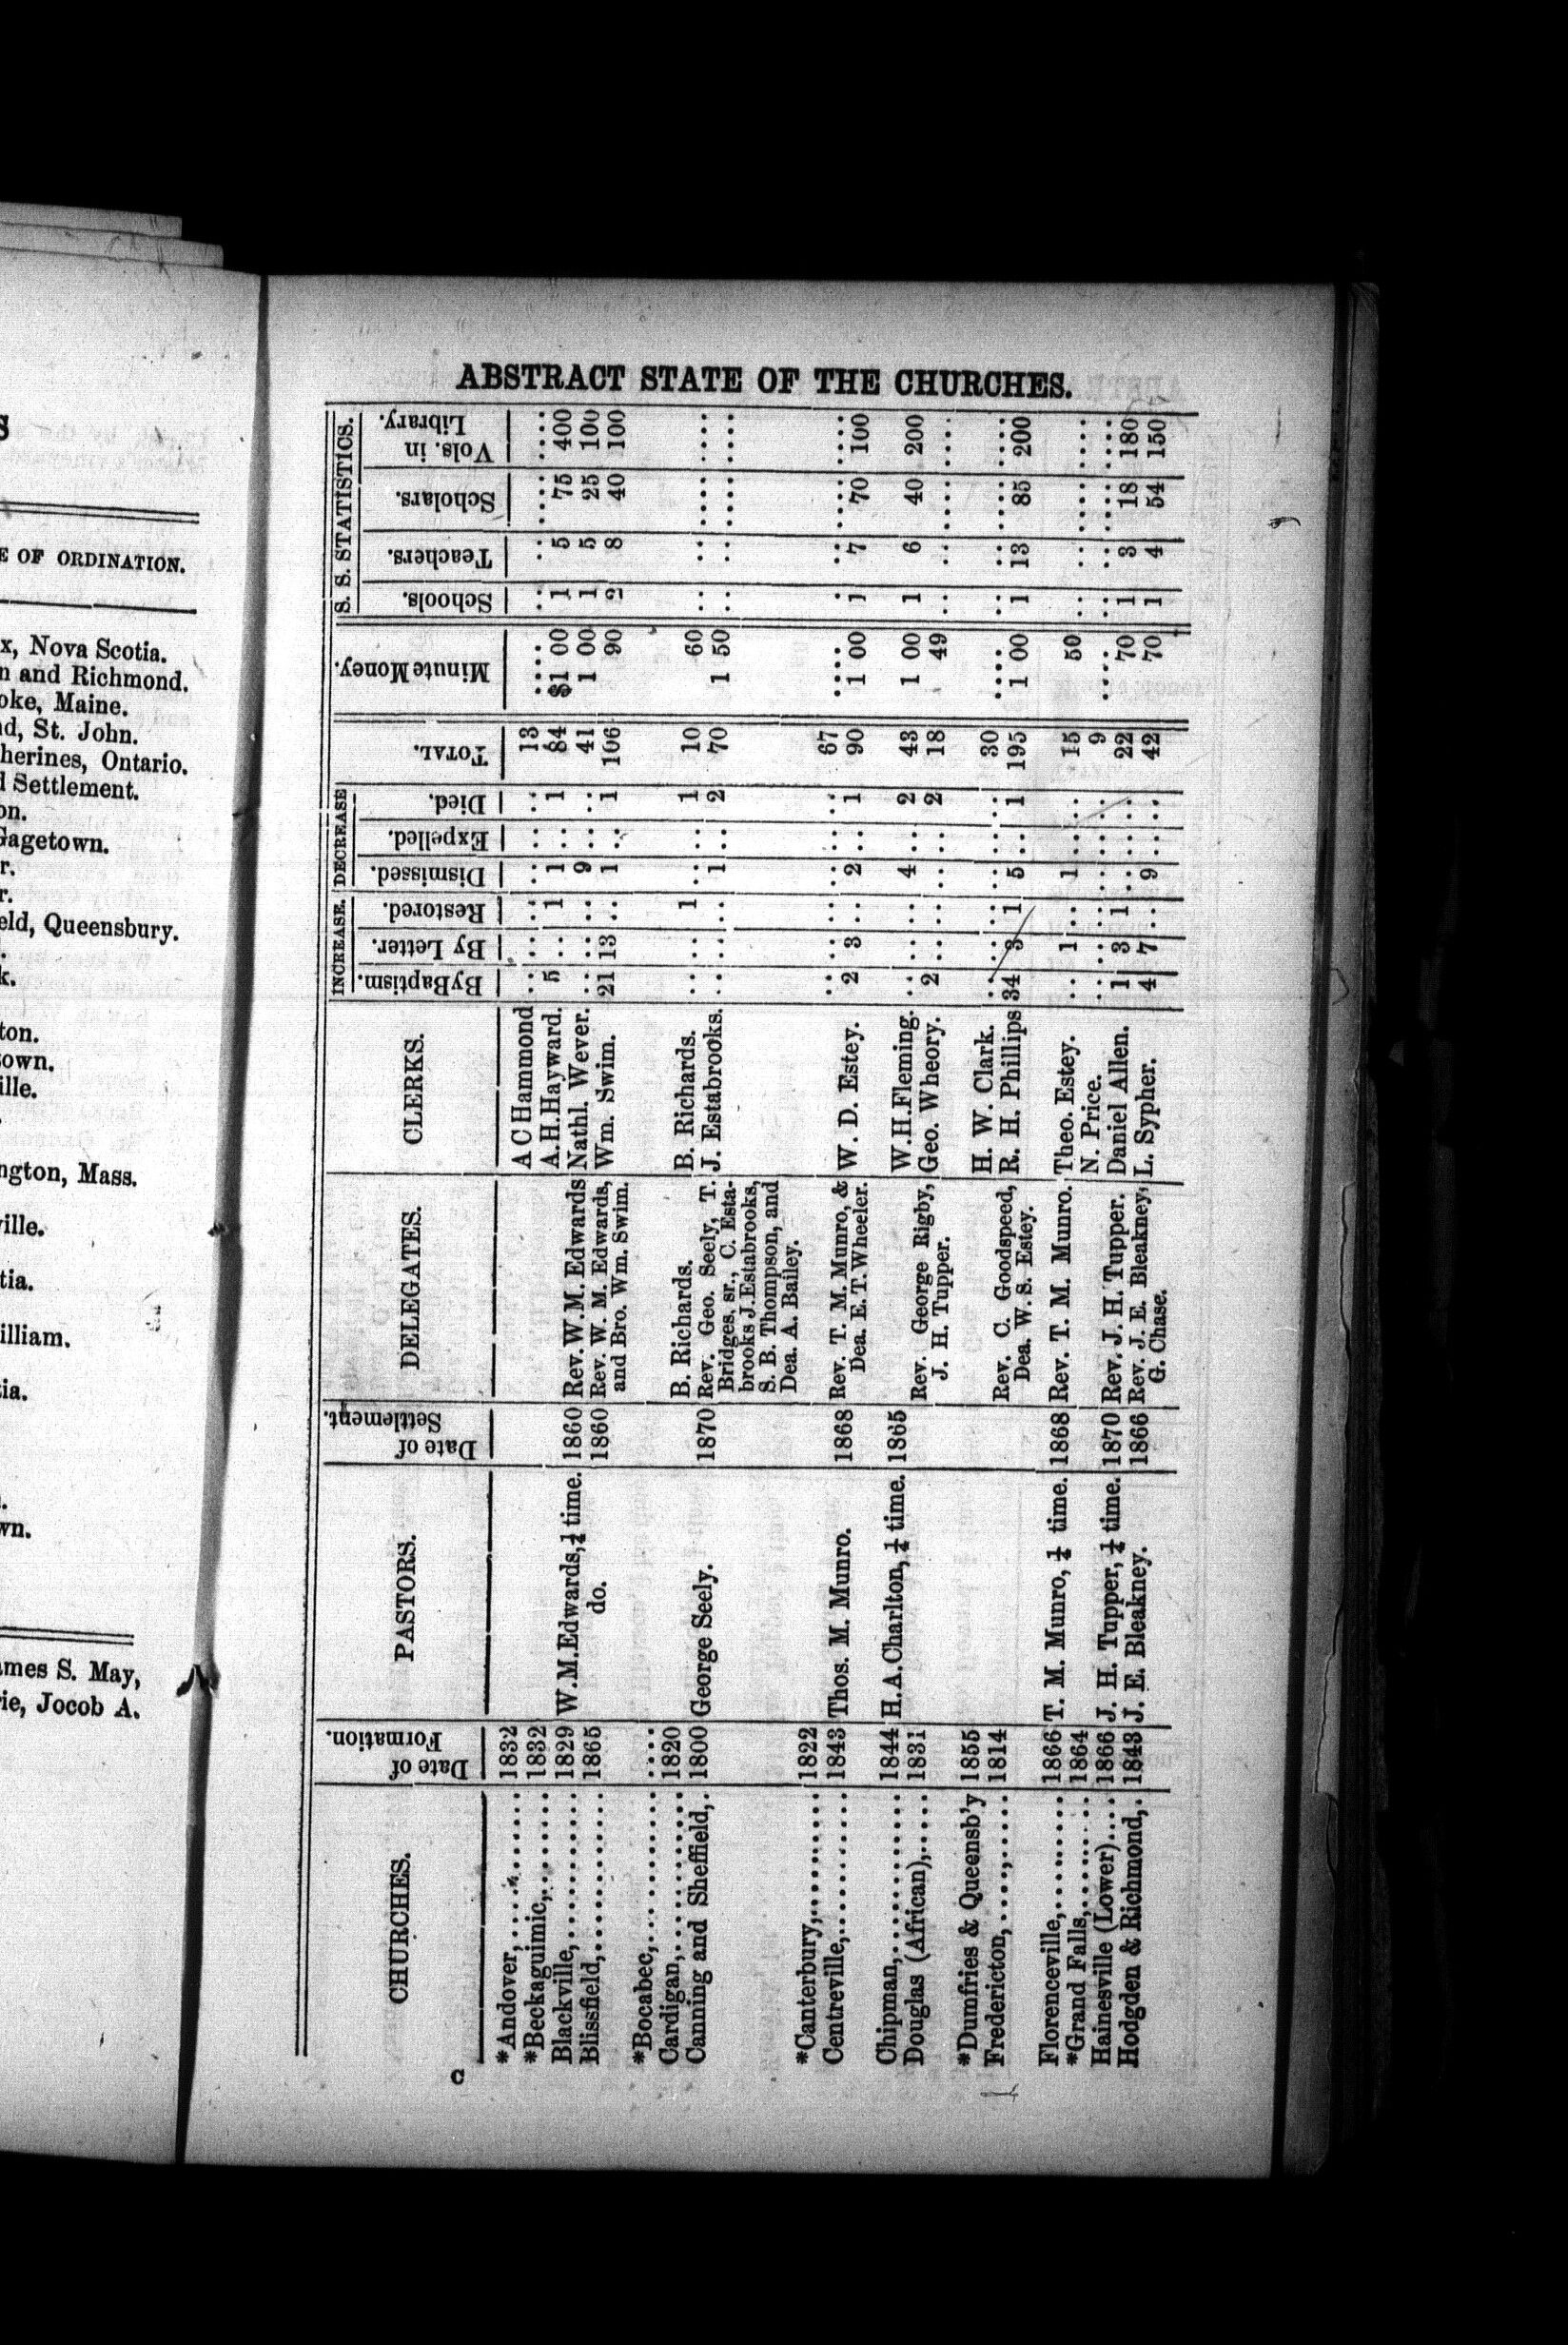 S
E OF ORDINATION.
x, Nova Scotia.
n and Richmond.
oke, Maine.
nd, St. John.
herines, Ontario.
d Settlement.
on.
Gagetown.
r.
r.
eld, Queensbury.
k.
ton.
town.
ille.
ngton, Mass.
ville.
tia.
illiam.
tia.
wn.
ames S. May,
rie, Jocob A.
ABSTRACT STATE OF THE CHURCHES.
CHURCHES. Date of Formation. PASTORS. Date of Settlement. DELEGATES. CLERKS. INCREASE. By Baptism. By Letter. Restored. DECREASE Dismissed. Expelled. Died. TOTAL. Minute Money. S. S. STATISTICS. Schools. Teachers. Scholars. Vols. in Library.
*Andover,.......... 1832 A C Hammond .. .. .. .. .. .. 13 .... .. .. .... ....
*Beckaguimic,........ 1832 A. H. Hayward. 5 .. 1 1 .. 1 84 $1 00 1 5 75 400
Blackville,.......... 1829 W. M. Edwards, ½ time. 1860 Rev. W. M. Edwards Nathl. Wever. .. .. .. 9 .. .. 41 1 00 1 5 25 100
Blissfield,.......... 1865 do. 1860 Rev. W. M. Edwards, Wm. Swim. 21 13 .. 1 .. 1 106 90 2 8 40 100
and Bro. Wm. Swim.
*Bocabec,.......... ....
Cardigan,.......... 1820 B. Richards. B. Richards. .. .. 1 .. .. 1 10 60 .. .. .... ....
Canning and Sheffield,. 1800 George Seely. 1870 Rev. Geo. Seely, T. J. Estabrooks. .. .. .. 1 .. 2 70 1 50 .. .. .... ....
Bridges, sr., C. Esta-
brooks J. Estabrooks,
S. B. Thompson, and
Dea. A. Bailey.
*Canterbury,.......... 1822 .. .. .. .. .. .. 67 .... .. .. .... ....
Centreville,.......... 1843 Thos. M. Munro. 1868 Rev. T. M. Munro, & W. D. Estey. 2 3 .. 2 .. 1 90 1 00 1 7 70 100
Dea. E. T. Wheeler.
Chipman,.......... 1844 H. A. Charlton, ½ time. 1865 W. H. Fleming. .. .. .. 4 .. 2 43 1 00 1 6 40 200
Douglas (African),..... 1831 Rev. George Rigby, Geo. Wheory. 2 .. .. .. .. 2 18 49 .. .. .... ....
J. H. Tupper.
*Dumfries & Queensb'y 1855 H. W. Clark. .. .. .. .. .. .. 30 .... .. .. .... ....
Fredericton,.......... 1814 Rev. C. Goodspeed, R. H. Phillips 34 3 1 5 .. 1 195 1 00 1 13 85 200
Dea. W. S. Estey.
Florenceville,.......... 1866 T. M. Munro, ½ time. 1868 Rev. T. M. Munro. Theo. Estey. .. 1 .. 1 .. .. 15 50 .. .. .... ....
*Grand Falls,.......... 1864 N. Price. .. .. .. .. .. .. 9 .... .. .. .... ....
Hainesville (Lower).... 1866 J. H. Tupper, ½ time. 1870 Rev. J. H. Tupper. Daniel Allen. 1 3 1 .. .. .. 22 70 1 3 18 180
Hodgden & Richmond,. 1843 J. E. Bleakney. 1866 Rev. J. E. Bleakney, L. Sypher. 4 7 .. 9 .. .. 42 70 1 4 54 150
G. Chase.
C